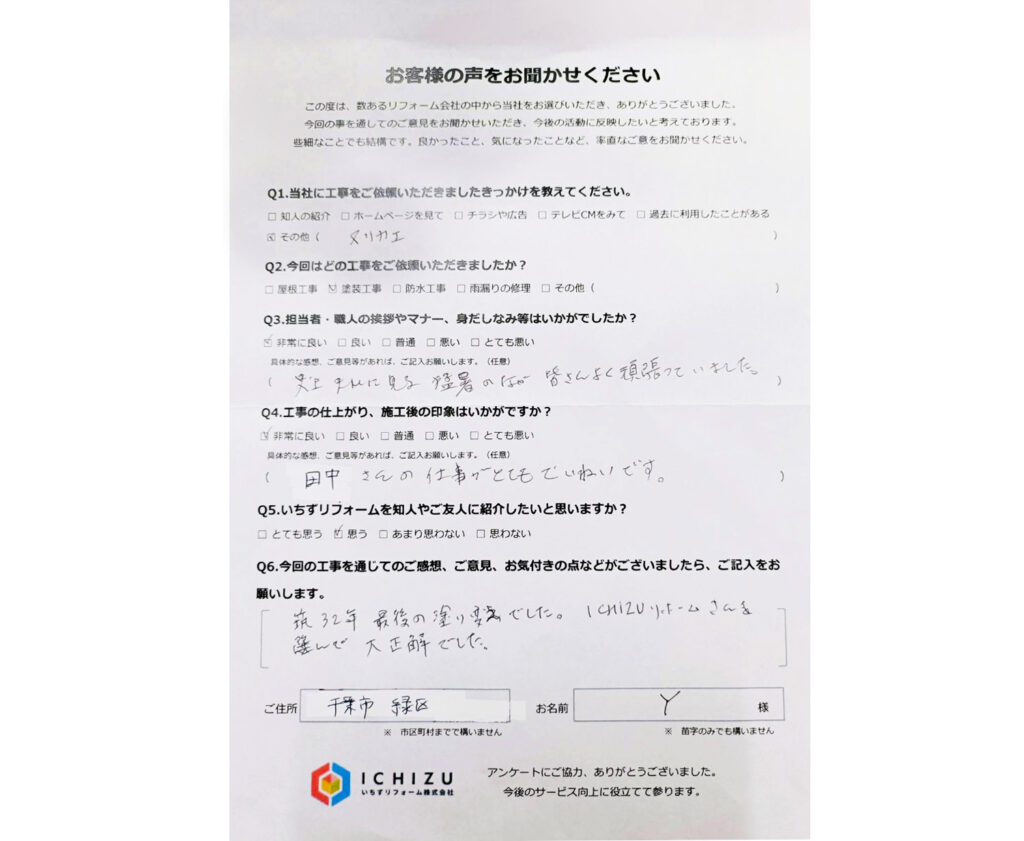 お客様の声をお聞かせください
この度は、数あるリフォーム会社の中から当社をお選びいただき、ありがとうございました。
今回の事を通してのご意見をお聞かせいただき、今後の活動に反映したいと考えております。
些細なことでも結構です。良かったこと、気になったことなど、率直なご意をお聞かせください。
Q1.当社に工事をご依頼いただきましたきっかけを教えてください。
□ 知人の紹介 □ ホームページを見て □ チラシや広告 □ テレビCMをみて □ 過去に利用したことがある
☑ その他（ ヌリカエ ）
Q2.今回はどの工事をご依頼いただきましたか？
□ 屋根工事 ☑ 塗装工事 □ 防水工事 □ 雨漏りの修理 □ その他（ ）
Q3.担当者・職人の挨拶やマナー、身だしなみ等はいかがでしたか？
☑ 非常に良い □ 良い □ 普通 □ 悪い □ とても悪い
具体的な感想、ご意見等があれば、ご記入お願いします。（任意）
（ 史上まれに見る猛暑のなか皆さんよく頑張っていました。 ）
Q4.工事の仕上がり、施工後の印象はいかがですか？
☑ 非常に良い □ 良い □ 普通 □ 悪い □ とても悪い
具体的な感想、ご意見等があれば、ご記入お願いします。（任意）
（ 田中さんの仕事がとてもていねいです。 ）
Q5.いちずリフォームを知人やご友人に紹介したいと思いますか？
□ とても思う ☑ 思う □ あまり思わない □ 思わない
Q6.今回の工事を通じてのご感想、ご意見、お気付きの点などがございましたら、ご記入をお
願いします。
筑32年 最後の塗り変えでした。 ICHIZUリホームさんを
選んで 大正解でした。
ご住所 千葉市 緑区 お名前 Y 様
※ 市区町村までで構いません ※ 苗字のみでも構いません
ICHIZU アンケートにご協力、ありがとうございました。
いちずリフォーム株式会社 今後のサービス向上に役立てて参ります。